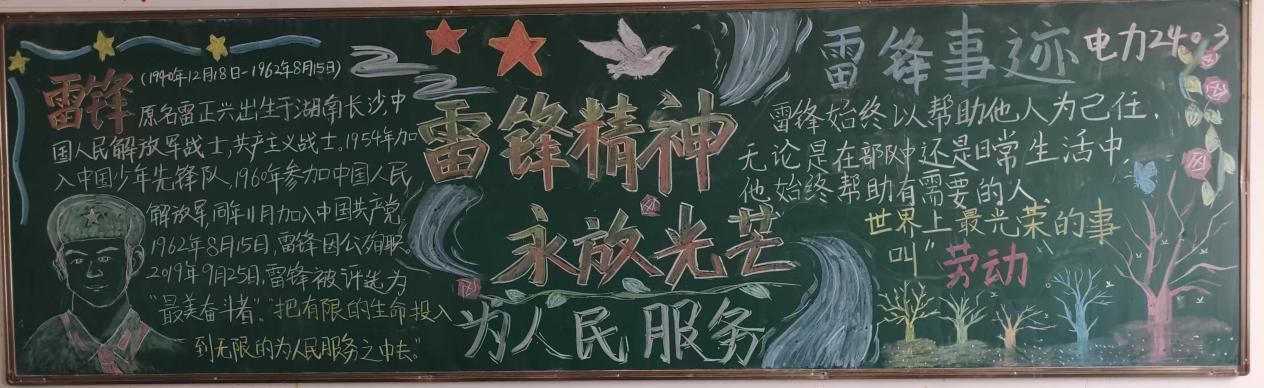 雷锋(1940年12月18日-1962年8月15日)
原名雷正兴出生于湖南长沙,中
国人民解放军战士,共产主义战士。1954年加
入中国少年先锋队,1960年参加中国人民
解放军,同年11月加入中国共产党,
1962年8月15日,雷锋因公殉职。
2019年9月25日,雷锋被评选为
“最美奋斗者”。“把有限的生命投入
到无限的为人民服务之中去。”
雷锋精神
永放光芒
为人民服务
雷锋事迹
电力24。3
雷锋始终以帮助他人为己任,
无论是在部队中还是日常生活中,
他始终帮助有需要的人
世界上最光荣的事
叫“劳动”